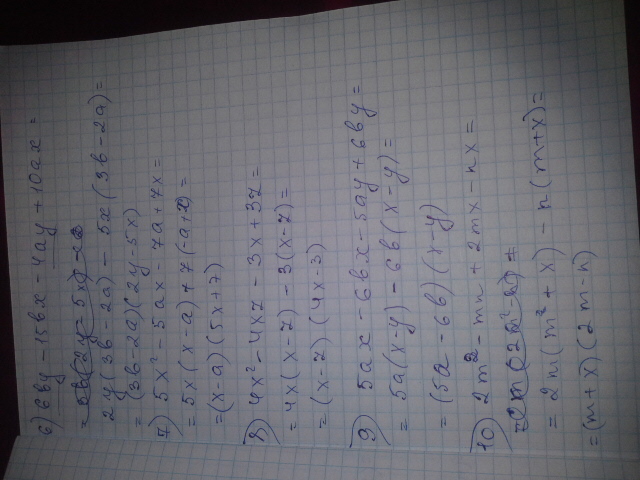 6) 6by - 15bx - 4ay + 10ax =
= 3b(2y - 5x) - 2
2y(3b - 2a) - 5x(3b - 2a) =
= (3b - 2a)(2y - 5x)
7) 5x² - 5ax - 7a + 7x =
= 5x(x - a) + 7(-a + x) =
= (x - a)(5x + 7)
8) 4x² - 4xz - 3x + 3z =
= 4x(x - z) - 3(x - z) =
= (x - z)(4x - 3)
9) 5ax - 6bx - 5ay + 6by =
= 5a(x - y) - 6b(x - y) =
= (5a - 6b)(x - y)
10) 2m² - mn + 2mx - nx =
= 2m(m² + x) - n(m + x) =
= (m + x)(2m - n)